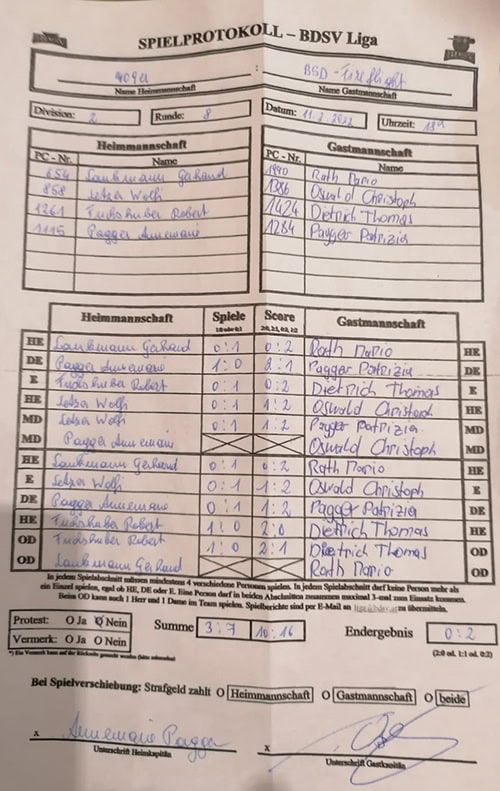 SPIELPROTOKOLL – BDSV Liga
709a BSD - Fireflight
Name Heimmannschaft Name Gastmannschaft
Division: 2 Runde: 8 Datum: 11.2.2022 Uhrzeit: 18
Heimmannschaft Gastmannschaft
PC - Nr. Name PC - Nr. Name
654 Laukmann Gerhard 1990 Rath Mario
858 Setza Wolfi 1386 Oswald Christoph
1261 Fuchshuber Robert 1424 Dietrich Thomas
1115 Pagger Annemarie 1284 Pagger Patrizia
Heimmannschaft Spiele Score Gastmannschaft
1:0 oder 0:1 2:0, 2:1, 0:2, 1:2
HE Laukmann Gerhard 0:1 0:2 Rath Mario HE
DE Pagger Annemarie 1:0 2:1 Pagger Patrizia DE
E Fuchshuber Robert 0:1 0:2 Dietrich Thomas E
HE Setza Wolfi 0:1 1:2 Oswald Christoph HE
MD Setza Wolfi 0:1 1:2 Pagger Patrizia MD
MD Pagger Annemarie Oswald Christoph MD
HE Laukmann Gerhard 0:1 0:2 Rath Mario HE
E Setza Wolfi 0:1 1:2 Oswald Christoph E
DE Pagger Annemarie 0:1 1:2 Pagger Patrizia DE
HE Fuchshuber Robert 1:0 2:0 Dietrich Thomas HE
OD Fuchshuber Robert 1:0 2:1 Dietrich Thomas OD
OD Laukmann Gerhard Rath Mario OD
In jedem Spielabschnitt müssen mindestens 4 verschiedene Personen spielen. In jedem Spielabschnitt darf keine Person mehr als
ein Einzel spielen, egal ob HE, DE oder E. Eine Person darf in beiden Abschnitten zusammen maximal 3-mal zum Einsatz kommen.
Beim OD kann auch 1 Herr und 1 Dame im Team spielen. Spielberichte sind per E-Mail an zu übermitteln.
Protest: O Ja O Nein Summe 3:7 10:16 Endergebnis 0:2
Vermerk: O Ja O Nein (2:0 od. 1:1 od. 0:2)
*) Ein Vermerk kann auf der Rückseite gemacht werden
Bei Spielverschiebung: Strafgeld zahlt O Heimmannschaft O Gastmannschaft O beide
x Annemarie Pagger x
Unterschrift Heimkapitän Unterschrift Gastkapitän